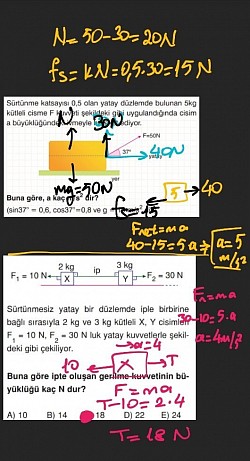 N = 50-30 = 20N
fs = kN = 0,5.30 = 15 N
Sürtünme katsayısı 0,5 olan yatay düzlemde bulunan 5kg
kütleli cisme F kuvveti şekildeki gibi uygulandığında cisim
a büyüklüğünde
N
30N
F=50N
37°
40N
yatay
mg=50N
yer
Buna göre, a kaç
dir?
(sin37° = 0,6, cos37° = 0,8 ve g
5
40
Fnet = ma
40-15 = 5a
a = 5
m/s²
2 kg
3 kg
F₁ = 10 N
X
ip
Y
F₂ = 30 N
Fn = m.a
30-10 = 5.a
a = 4m/s²
Sürtünmesiz yatay bir düzlemde iple birbirine
bağlı sırasıyla 2 kg ve 3 kg kütleli X, Y cisimleri
F₁ = 10 N, F₂ = 30 N luk yatay kuvvetlerle şekil-
deki gibi çekiliyor.
a=4
10
X
T
Buna göre ipte oluşan gerilme kuvvetinin bü-
yüklüğü kaç N dur?
F = ma
T-10 = 2.4
A) 10
B) 14
18
D) 22
E) 24
T = 18 N